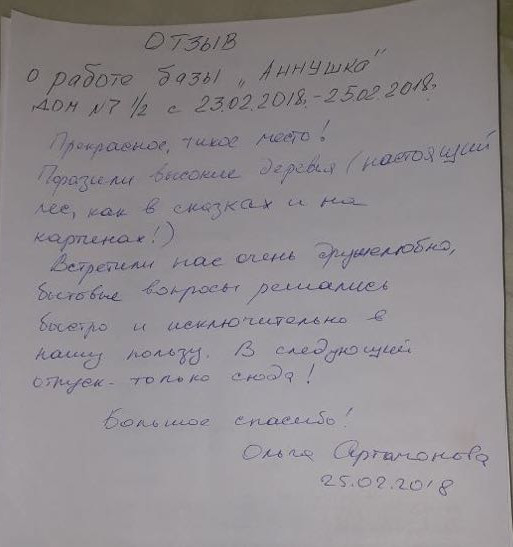 ОТЗЫВ
о работе базы „Аннушка"
дом №7 1/2 с 23.02.2018г.-25.02.2018г.
Прекрасное, тихое место!
Поразили высокие деревья (настоящий
лес, как в сказках и на
картинах!)
Встретили нас очень дружелюбно,
бытовые вопросы решались
быстро и исключительно в
нашу пользу. В следующий
отпуск - только сюда!
Большое спасибо!
Ольга Артамонова
25.02.2018